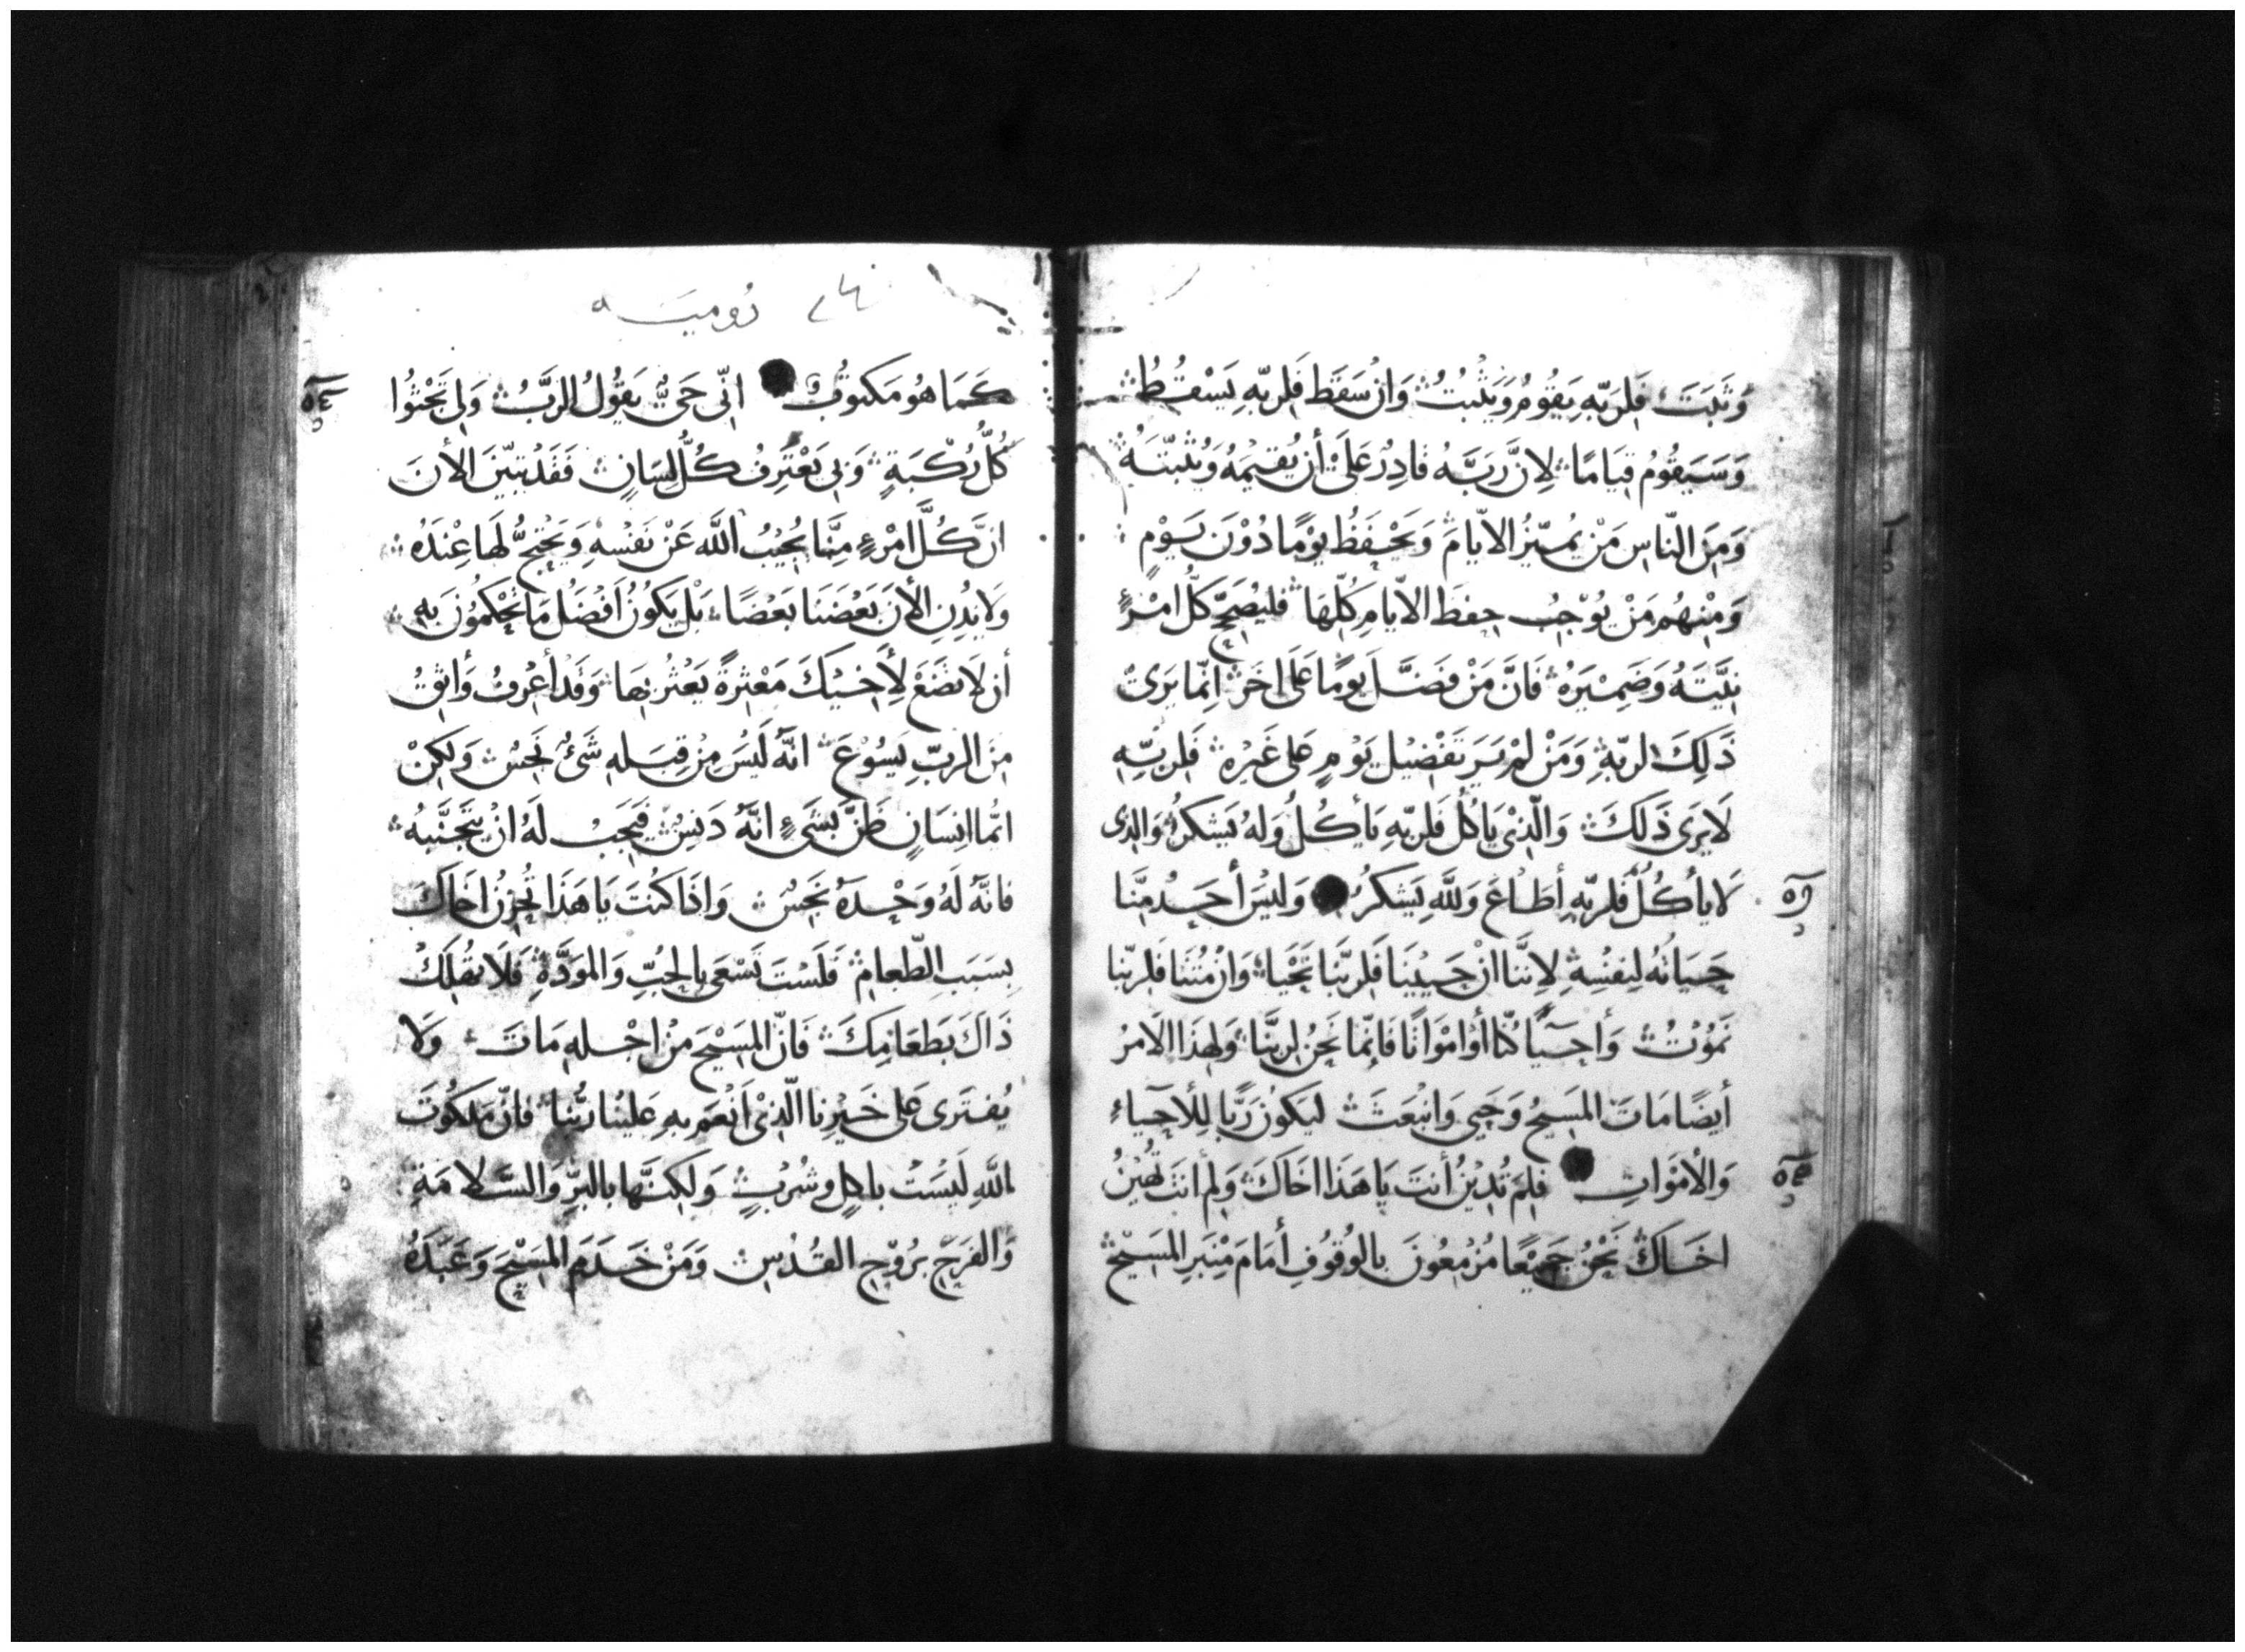 وَثَبَتَ فَلِرَبّهِ يَقُومُ وَيَثْبُتُ وَانْ سَقَطَ فَلِربّهِ يَسْقُطُ
وَسَيَقُومُ قِيَامًا لِانَّ رَبَّهُ قَادِرُ عَلَىْ أن يُقيمَهُ وَيُثَبّتَهُ
وَمِنَ النّاسِ مَنْ يُميّزُ الايّامَ وَيَحْفَظُ يَوْمًا دُوْنَ يَوْمٍ
وَمِنْهُم مَنْ يُوْجِبُ حِفظَ الايّامِ كُلّهَا فليُصَحّح كُلّ امْرِءٍ
نِيَّتَهُ وَضَمِيْرَهُ فَانَّ مَنْ فَضَّلَ يَومًا عَلَى اخَرَ انّما يَرَىْ
ذَلِكَ لربّهِ وَمَنْ لمْ يَرَ تَفْضِيْل يَوْمٍ عَلى غَيْرِهِ فَلربّهِ
لَا يرَى ذَلكَ وَالّذِىْ يَاكُلُ فَلربّهِ يَأكُلُ وَلهُ يَشكرُ وَالذِى
لَا يأكُلُ فلربّهِ أطَاعَ وَللّهِ يَشكرُ وَليْسَ أحَدُ مِنَّا
حَيَاتُهُ لِنفسِهِ لِانّنا انْ حَيِيْنَا فَلربّنَا نَحْيَا وَانْ مُتْنَا فَلربّنا
نَمُوْتُ وَأحيَآءً كنّا أوْ امْوَاتًا فَانّما نَحنُ لربّنَا وَلهذَا الامْرُ
أيضًا مَاتَ المسِيحُ وَحَيِيَ وَانبَعَثَ ليَكونَ رَبًّا لِلأحيَآءِ
وَالأمْوَاتِ فلِمَ تُدِيْنُ أنتَ يَا هَذَا اخَاكَ وَلِمَ أنتَ تُهِيْنُ
اخَاكَ نَحْنُ جَمِيْعًا مُزْمِعُونَ بالوُقوُفِ أمَامَ مِنْبَرِ المسِيْح
رُوميه
كَمَا هُو مَكتوُبُ انّى حَىُّ يَقُولُ الرَّبُّ وَلِى تَجْثُوا
كُلُّ رُكْبَةٍ وَبِى يَعْتَرِفُ كُلُّ لِسَانٍ فَقَدْ تبيّنَ الأنَ
انَّ كُلَّ امْرِءٍ مِنَّا يُجِيْبُ اللَّه عَنْ نَفْسِهِ وَيَحْتجُّ لَها عِنْدَهُ
وَلا يُدِنِ الأنَ بَعْضنَا بَعْضًا بَلْ يَكونُ افْضَل مَا تَحْكمُونَ بهِ
أن لَا تضَعَ لِأخيْكَ مَعْثرةً يَعْثُر بِهَا وَقَد أعْرِفُ وَأثِقُ
مِنَ الربّ يَسُوْعَ انّهُ لَيسَ مِنْ قِبَلهِ شَىءُ نَجسُ وَلكِنْ
ايّما انِسَانٍ ظَنَّ بشَىءٍ انّهُ دَنِسُ فيَجبُ لَهُ انْ يَتجَنَّبهُ
فانّهُ لَهُ وَحْدَهُ نَجَسُ وَاذَا كُنتَ يَا هَذَا تُحْزِنُ اخَاكَ
بِسَبَبِ الطّعامِ فَلَسْتَ تَسْعَى بالحُبِّ وَالموَدَّةِ فَلَا تهْلِكْ
ذَاكَ بَطعَامِكَ فَانّ المَسِيْحَ مِنْ اجْلهِ مَاتَ وَلا
يُفتَرَى عَلَى خَيْرِنا الّذِىْ أنعَم بهِ عَلينا ربُّنا فانّ مَلكُوتَ
اللَّهِ لَيسَتْ باكلٍ وشُرْبٍ وَلَكِنَّها بالبرّ وَالسَّلامَةِ
وَالفَرَحِ برُوْحِ القُدُسِ وَمَنْ خَدَمَ المَسِيْحَ وَعَبَدَهُ